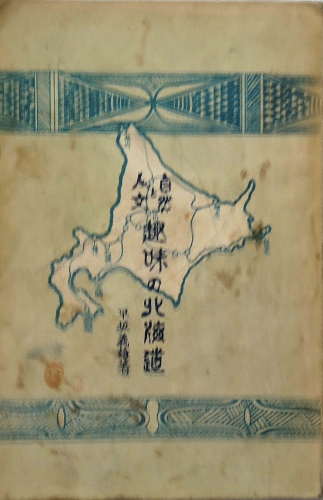 自然
人文
趣味の北海道
平坂義雄著